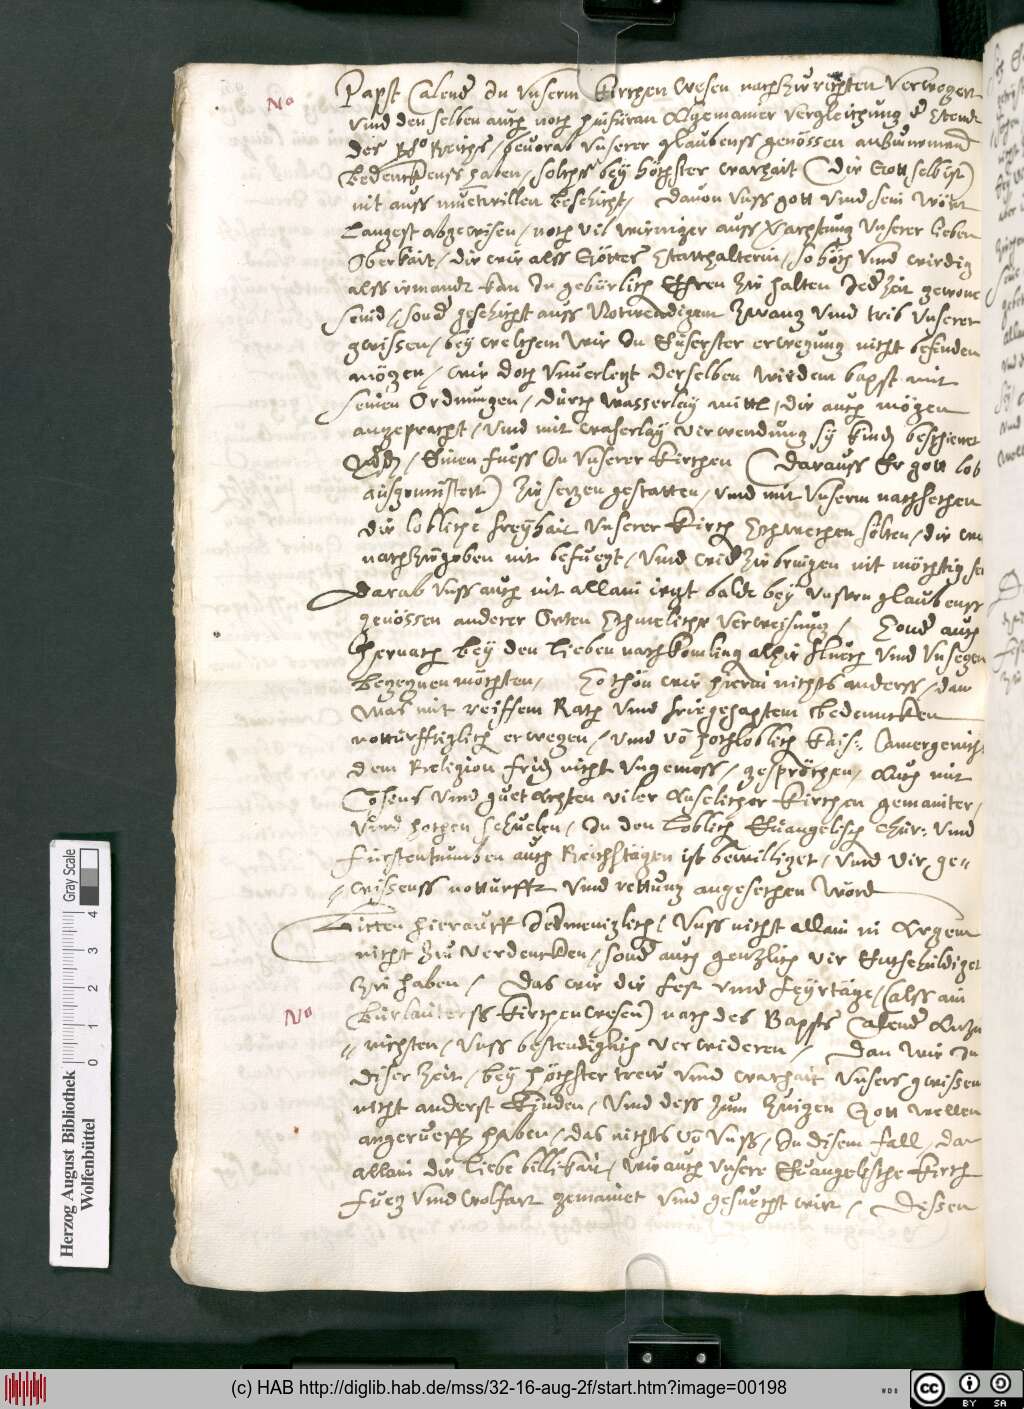 No
Papst Calend In vnserm Kirchen wesen nachzurichten verwegert
vnnd den selben auch noch hinfüran Algemainer vergleichung d Stende
des Reichs, beuorab vnserer glaubenss genössen anzunemend
bedenckhenss haben, solchs bey höchster warhait (die Gott selb ist)
nit auss muetwillen beschicht, dauon vnss gott vnnd sein wort
Langest abgewisen, noch vil weniger auss verachtung vnserer lieben
Oberkait, die wir alss Gottes Statthalterin, so hoch vnnd wirdig
alss iemandt kan In gebürlich Ehren zu halten Ied Zeit gewont
seind, sond geschicht auss Notwendigem zwang vnnd trib vnserer
gwissen, bey welchem wir In Eüserster erwegung nicht befinden
mögen, wie doch vnuerletzt derselben wir dem bapst mit
seinen Ordnungen, durch wasserlay mittl, die auch mögen
angepracht, vnnd mit waserlay verwendung sy kind beschient
werden, Einen fuess In vnserer Kirchen (darauss Er gott lob
aussgemustert) zu setzen gestatten, vnnd mit vnserm nachsehen
die lobliche freyhait vnserer Kirch Schwechen solten, die wir
nachzugeben nit befuegt, vnnd wid zu bringen nit möchtig sei
Darab vnss auch nit allain ietzt balde bey vnsern glaubenss
genössen anderer Orten Schmeliche verweisung, Sond auch
hernach bey den lieben nachkomling alhie fluech vnnd vnsegen
begegnen möchten, So thon wir hierin nichts anderss, dan
was mit reiffem Rath vnnd bedenncken
notturfftiglich erwegen, vnnd vo hochloblich Kais: Camergericht
dem Religion frid nicht vngemess, gesprochen, Auch mit
Consens vnnd guet Achten viler Anselicher Kirchen gemainter,
vnnd hochen schuelen, In den Loblich Euangelisch Chur: vnnd
Fürstentumben auch Reichstägen ist bewilliget, vnnd vir ge=
wissenss notturfft vnnd rettung angesechen word
Bitten hierauff Iedmeniglich, vnss nicht allain in Argem
nicht zu verdenckhen, sond auch gentzlich vir Entschuldiget
zu haben, Das wir die fest vnnd feyrtäge, (alss ain
No
Kirchenwesen) nach des Bapsts Calend Anzu
richten, vnss bestendiglich verwideren, Dan wir In
diser Zeit, bey höchster trew vnnd warhait vnsers gwissen
nicht anderst Kinden, vnnd dess zum Zeügen Gott wellen
angerueff haben, das nichts vo vnss, In disem fall, dan
allain die liebe billikait, wie auch vnsere Euangelische Kirch
fueg vnnd wolfart gemainet vnnd gesuecht wirt, Dessen
Herzog August Bibliothek
Wolfenbüttel
0 1 2 3 4
Gray Scale
(c) HAB http://diglib.hab.de/mss/32-16-aug-2f/start.htm?image=00198
WDB
cc BY SA